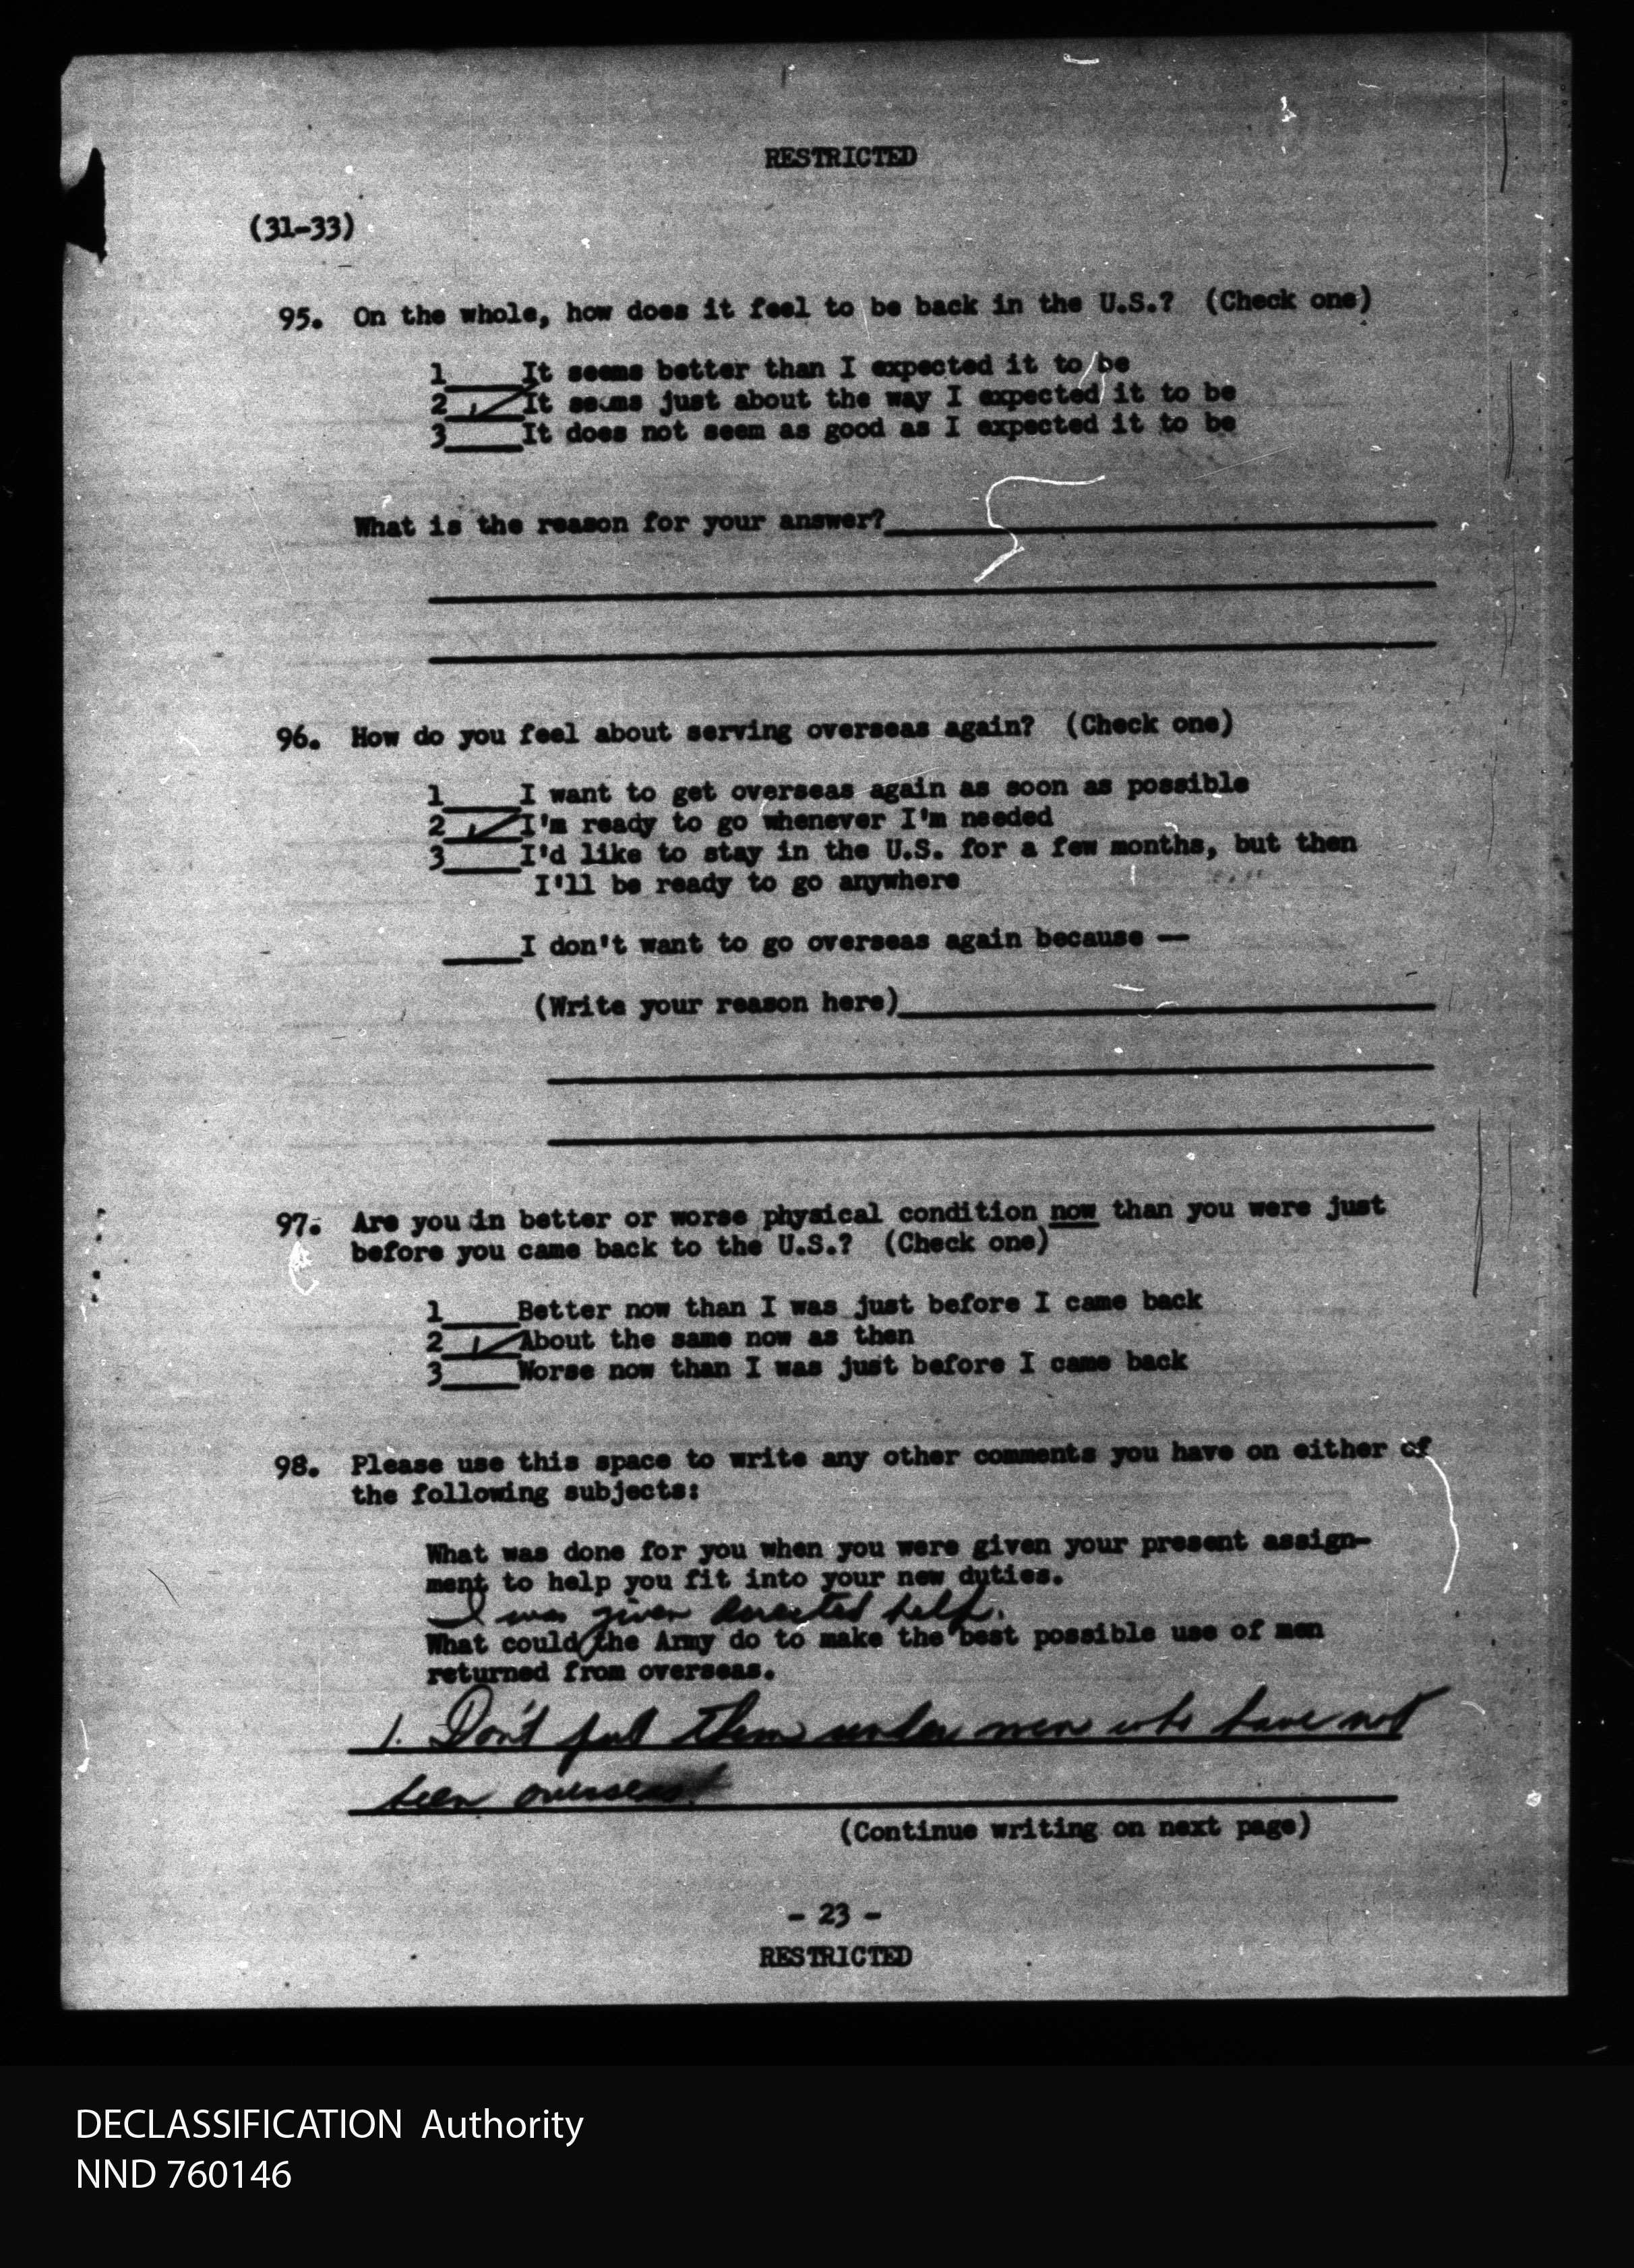 RESTRICTED
(31-33)
95. On the whole, how does it feel to be back in the U.S.? (Check one)
1____It seems better than I expected it to be
2_✓_It seems just about the way I expected it to be
3____It does not seem as good as I expected it to be
What is the reason for your answer?
96. How do you feel about serving overseas again? (Check one)
1____I want to get overseas again as soon as possible
2_✓_I'm ready to go whenever I'm needed
3____I'd like to stay in the U.S. for a few months, but then
I'll be ready to go anywhere
____I don't want to go overseas again because —
(Write your reason here)
97. Are you in better or worse physical condition now than you were just
before you came back to the U.S.? (Check one)
1____Better now than I was just before I came back
2_✓_About the same now as then
3____Worse now than I was just before I came back
98. Please use this space to write any other comments you have on either of
the following subjects:
What was done for you when you were given your present assign-
ment to help you fit into your new duties.
I was given directed help.
What could the Army do to make the best possible use of men
returned from overseas.
1. Don't put them under men who have not
been overseas
(Continue writing on next page)
- 23 -
RESTRICTED
DECLASSIFICATION Authority
NND 760146